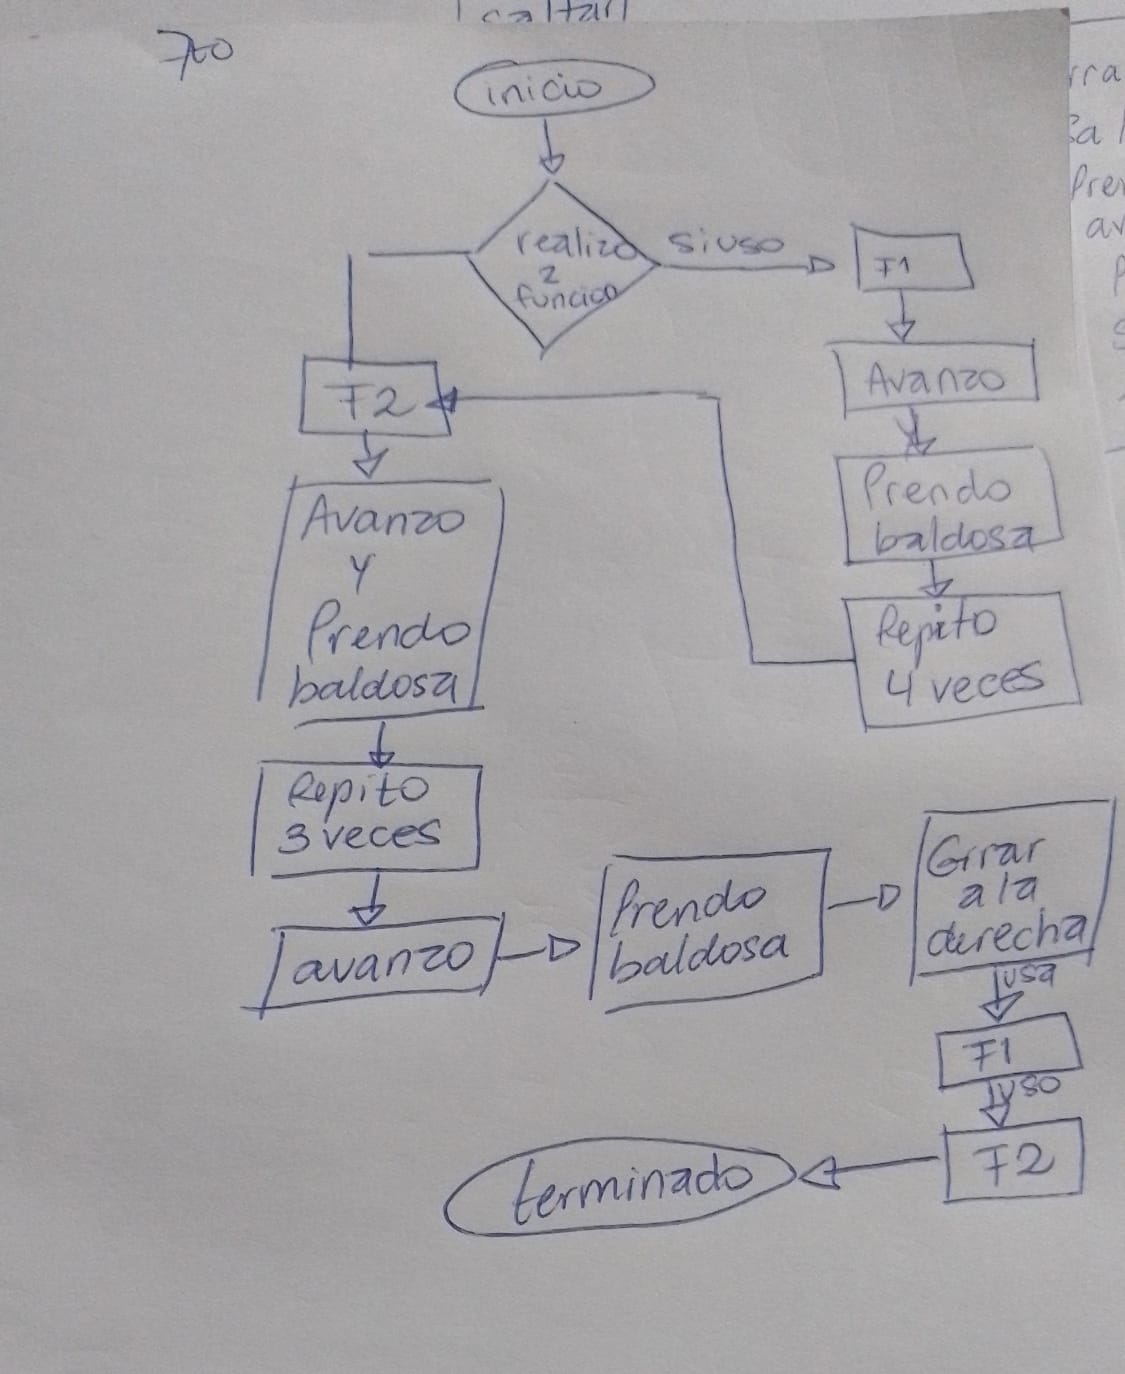 7to
inicio
realizo
2
funcion
si uso
F1
Avanzo
Prendo
baldosa
Repito
4 veces
F2
Avanzo
y
Prendo
baldosa
Repito
3 veces
avanzo
Prendo
baldosa
Girar
a la
derecha
usa
F1
uso
F2
terminado